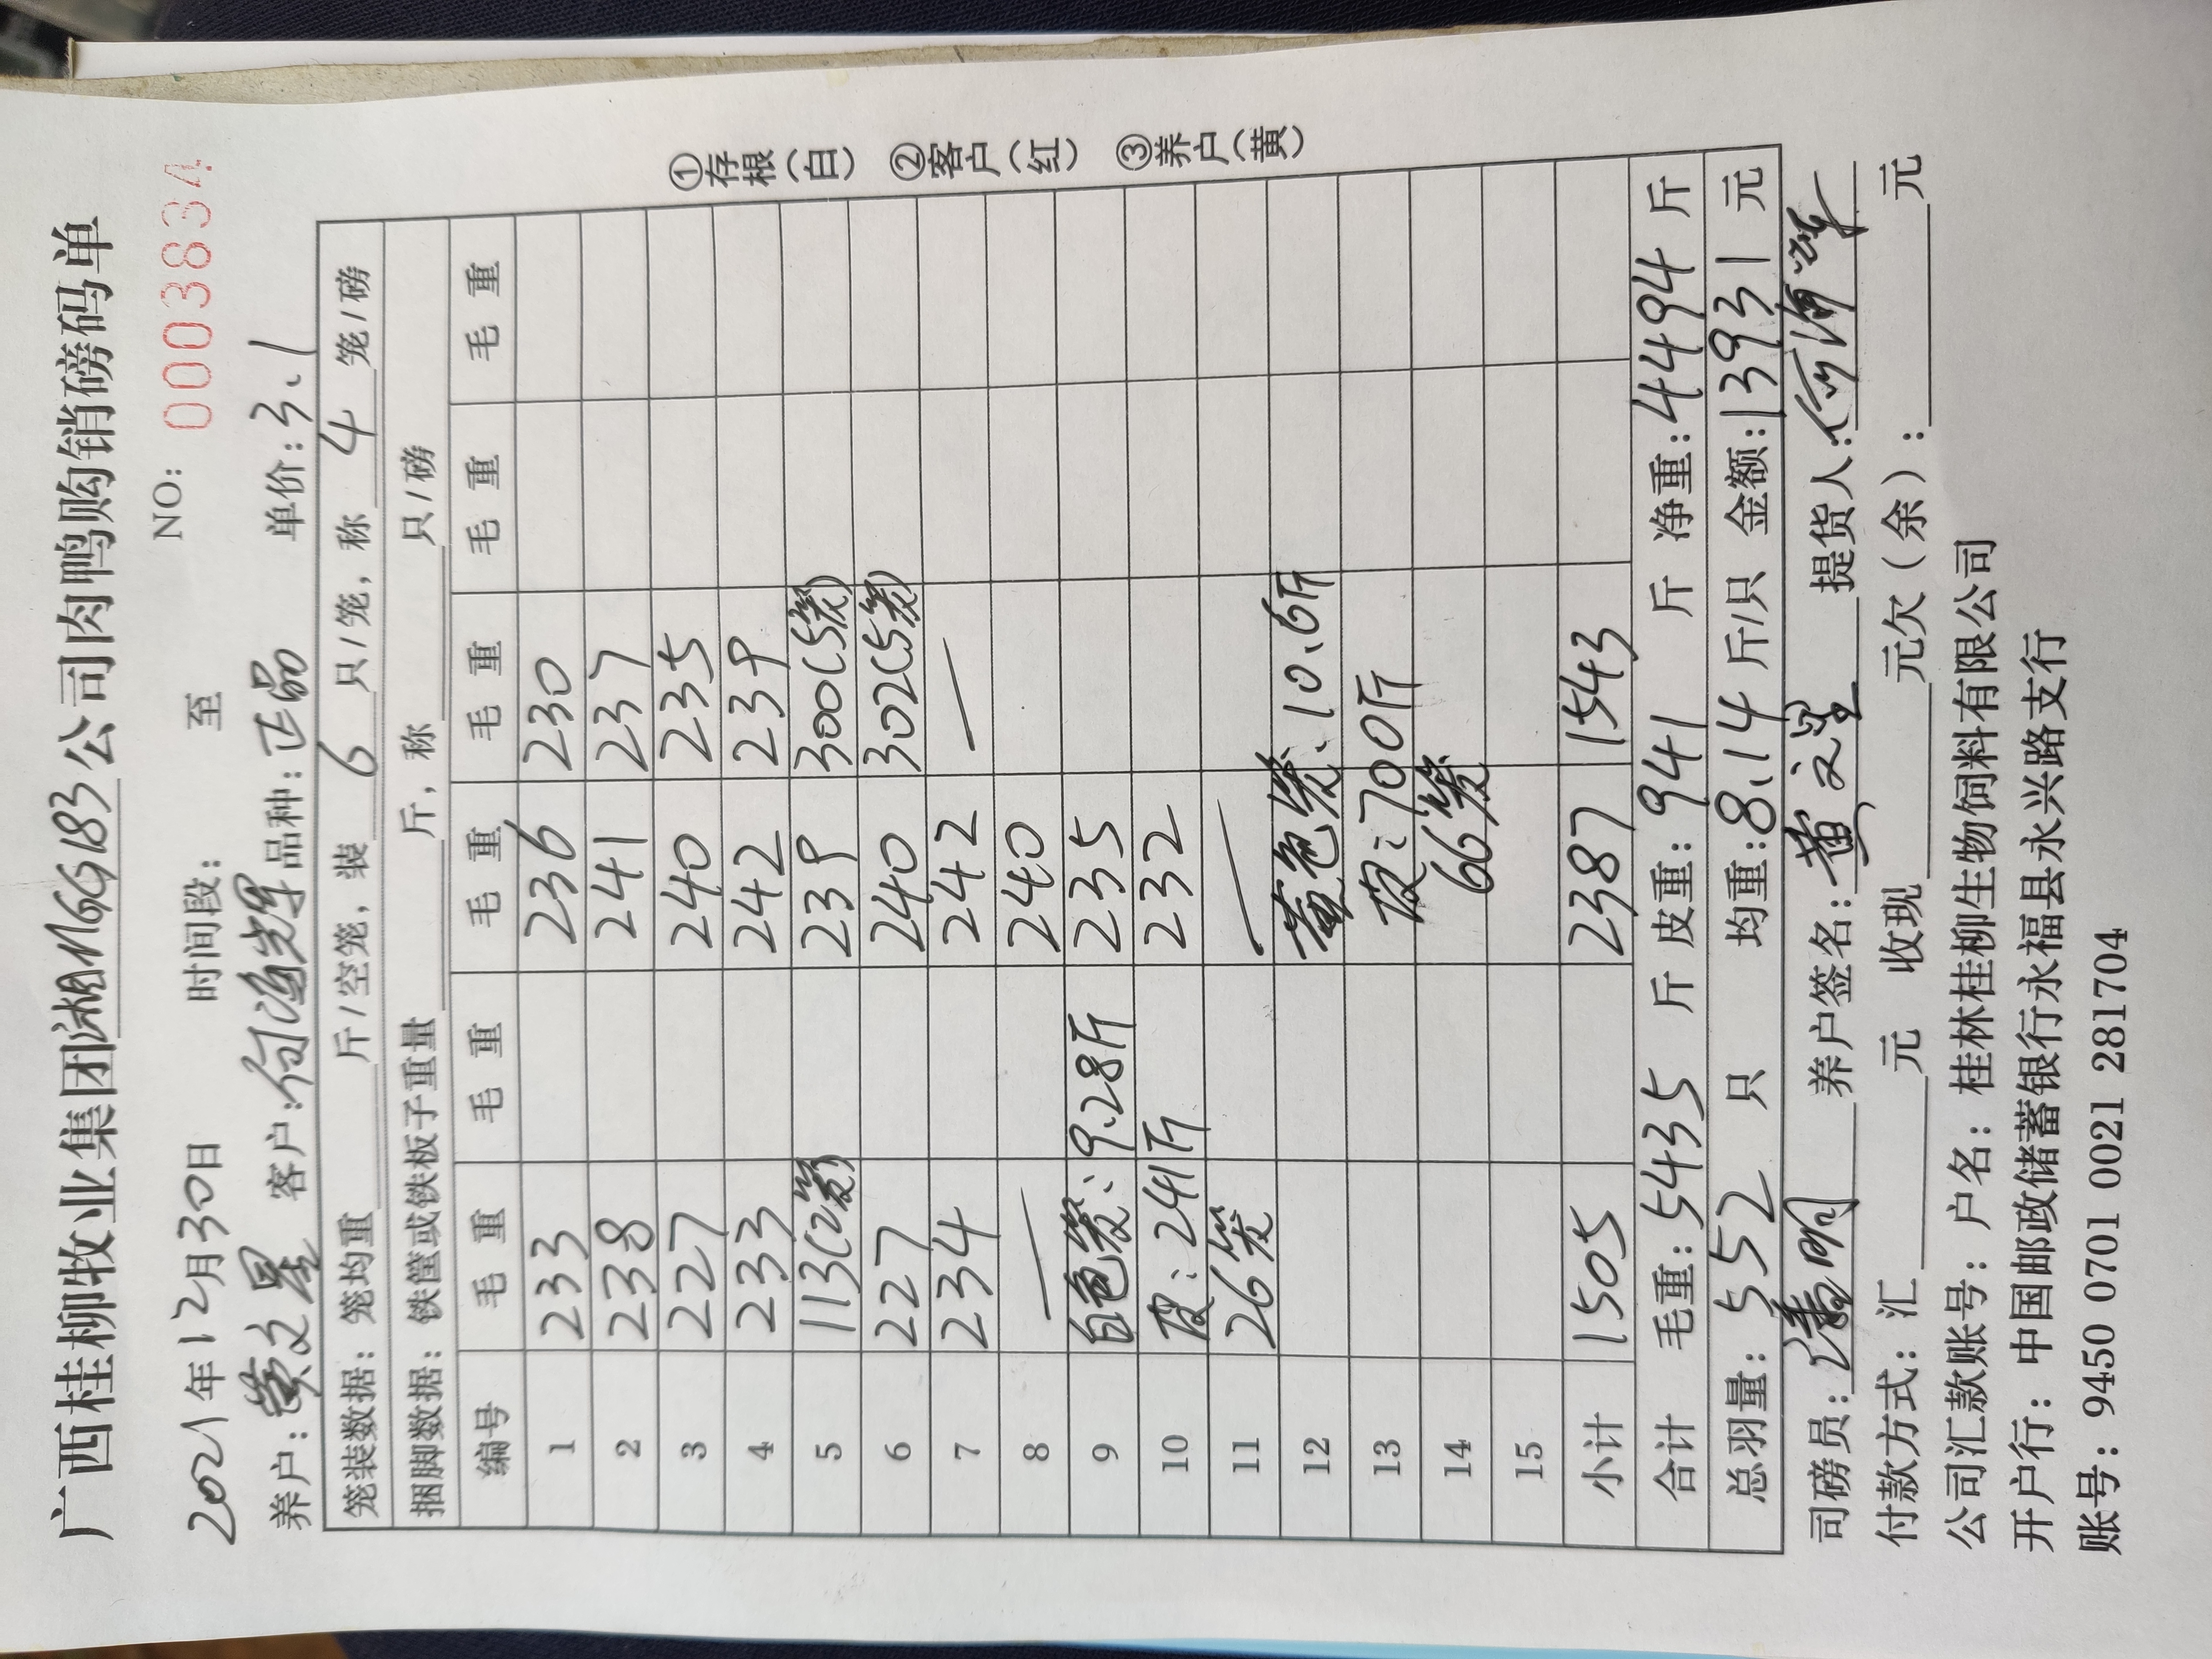 广西桂柳牧业集团湖南NGG183公司肉鸭购销磅码单
NO: 0003834
2021年12月30日 时间段: 至
养户: 黄文星 客户: 付海辉 品种: 正品 单价: 3.1
笼装数据: 笼均重 斤/空笼, 装 6 只/笼, 称 4 笼/磅
捆脚数据: 铁筐或铁板子重量 斤, 称 只/磅
编号 毛重 毛重 毛重 毛重 毛重 毛重
1 233 236 230
2 238 241 237
3 227 240 235
4 233 242 239
5 113(2笼) 239 300(5笼)
6 227 240 302(5笼)
7 234 242 —
8 — 240
9 白色笼: 9.28斤 235
10 皮: 241斤 232
11 26笼 —
12 黄色笼: 10.6斤
13 皮: 700斤
14 66笼
15
小计 1505 2387 1543
合计 毛重: 5435 斤 皮重: 941 斤 净重: 4494 斤
总羽量: 552 只 均重: 8.14 斤/只 金额: 13931 元
司磅员: 养户签名: 黄文星 提货人:
付款方式: 汇 元 收现 元欠(余): 元
公司汇款账号: 户名: 桂林桂柳生物饲料有限公司
开户行: 中国邮政储蓄银行永福县永兴路支行
账号: 9450 0701 0021 2817 04
①存根(白) ②客户(红) ③养户(黄)